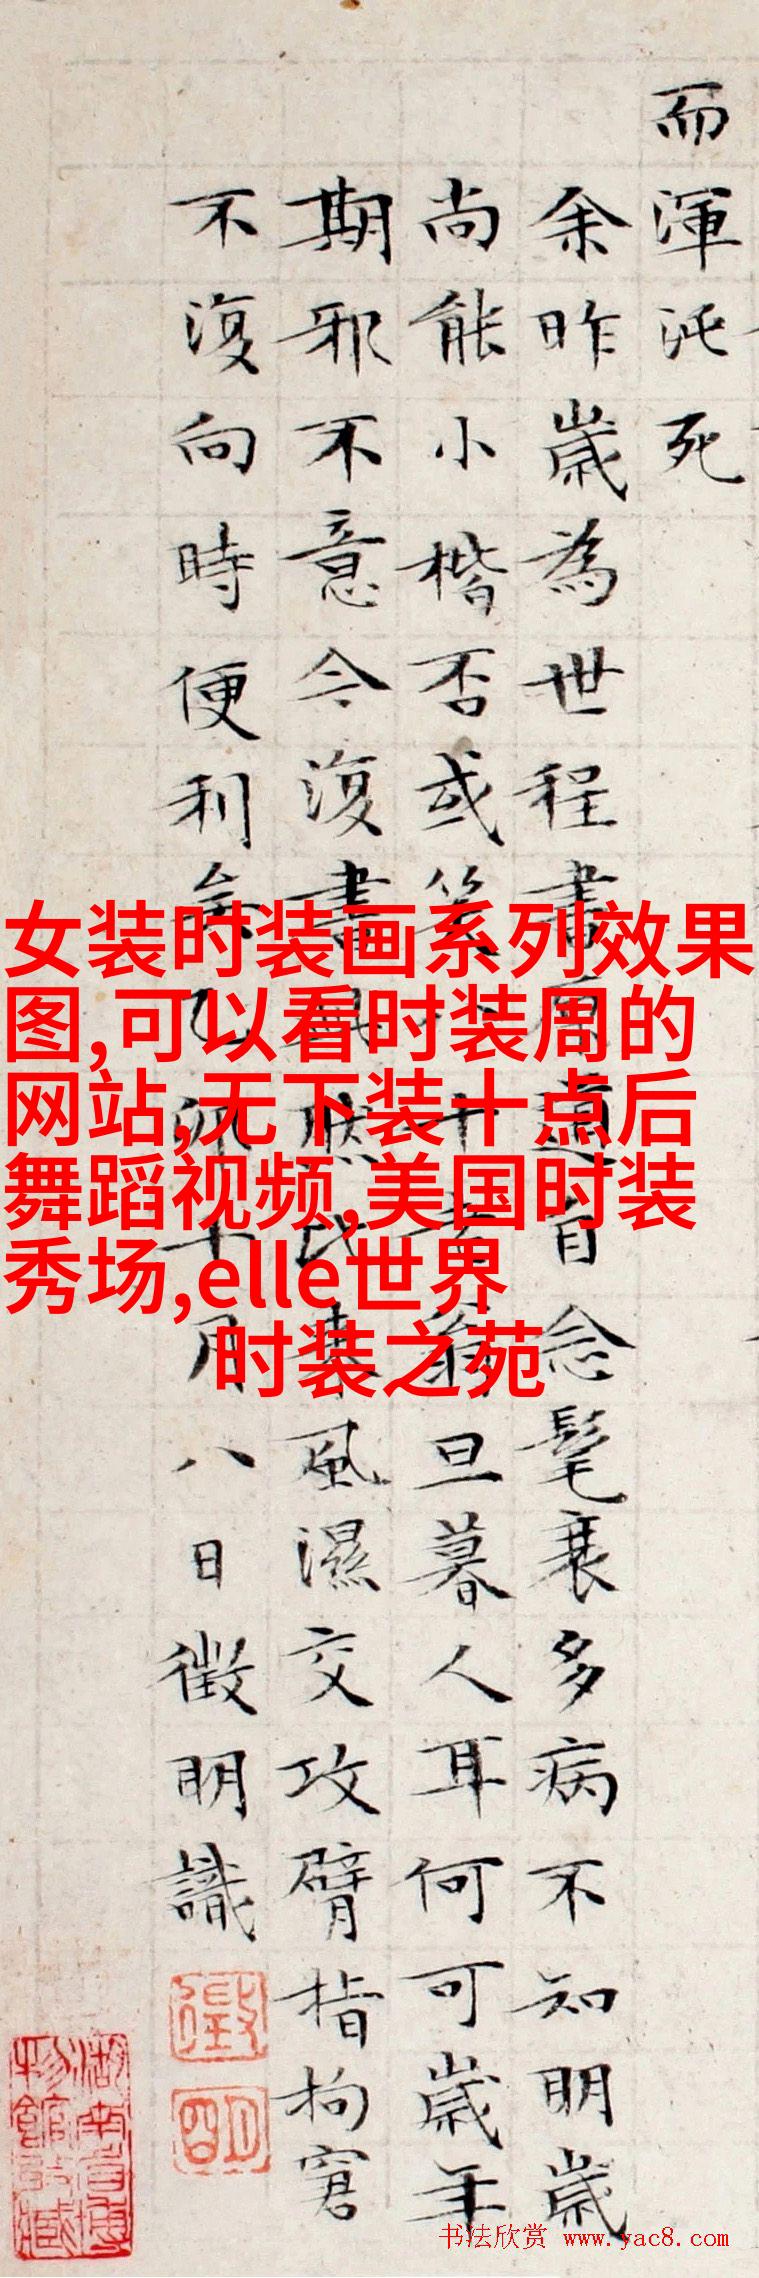 而渾沌死
余昨歲為世程書原道自念髦衰多病不知明歲
尚能小楷否或笑八十老翁旦暮人耳何可歲年
期邪不意今復書然比來風濕交攻臂指拘窘
不復向時便利矣乙卯十月八日徵明識
徵
明
湖南省博
物館收藏
女装时装画系列效果
图,可以看时装周的
网站,无下装十点后
舞蹈视频,美国时装
秀场,elle世界
时装之苑
书法欣赏 www.yac8.com